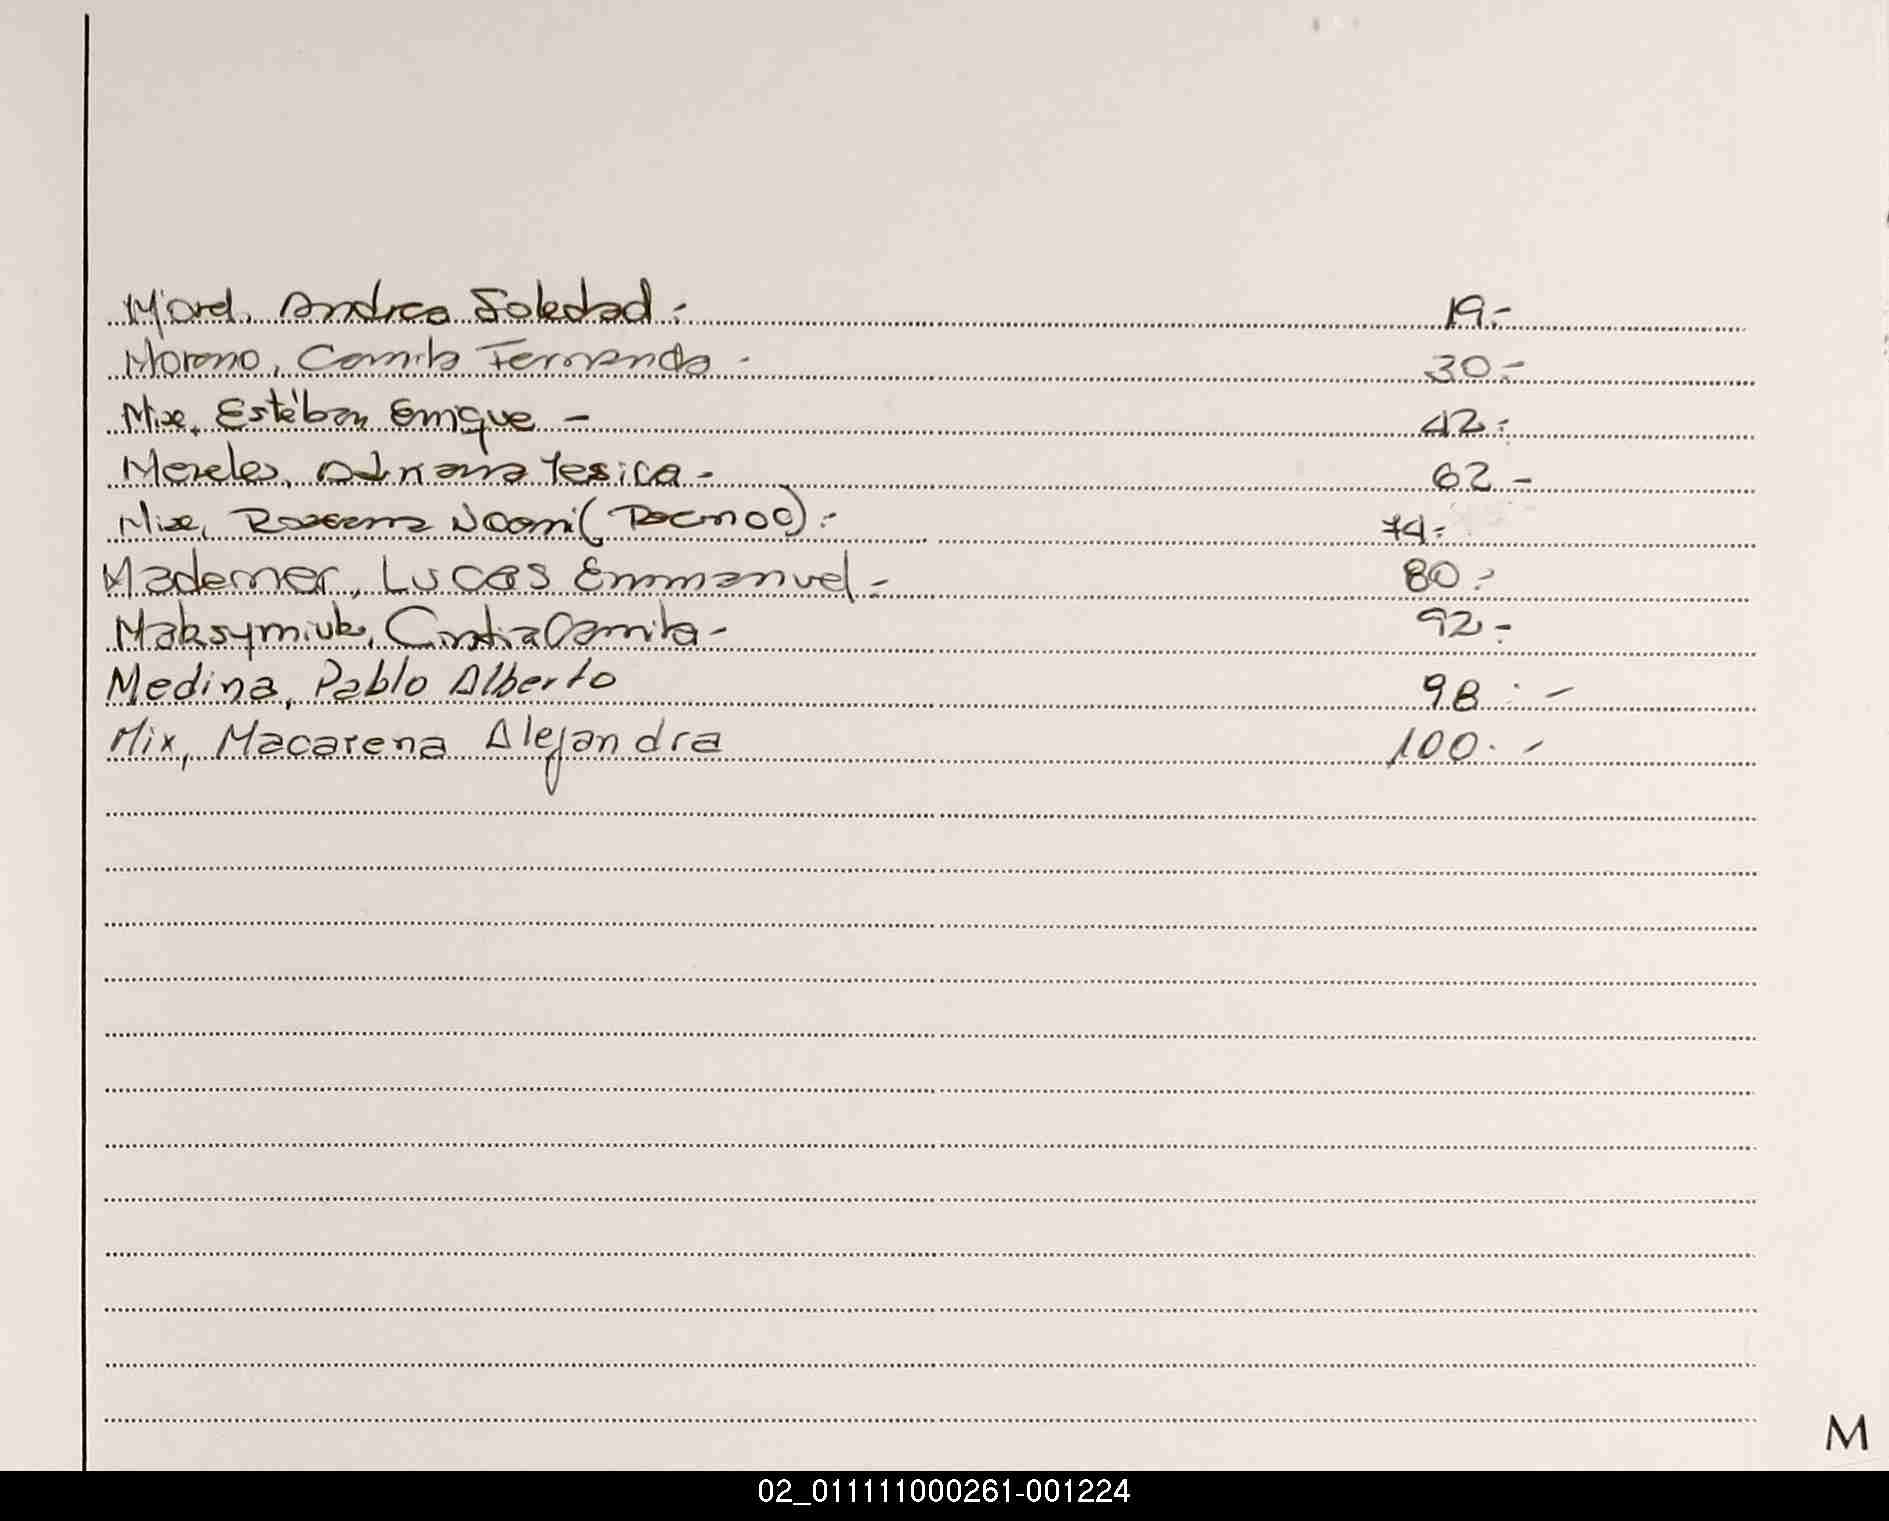 Morel, Andrea Soledad.- 19.-
Moreno, Camila Fernanda - 30.-
Mix, Estéban Enrique - 42.-
Mereles, Adriana Yesica - 62.-
Mix, Noemi ( ).- 74.-
Mademer, Lucas Emmanuel.- 80.-
Maksymiuk, Cintia Camila - 92.-
Medina, Pablo Alberto 98.-
Mix, Macarena Alejandra 100.-
M
02_011111000261-001224